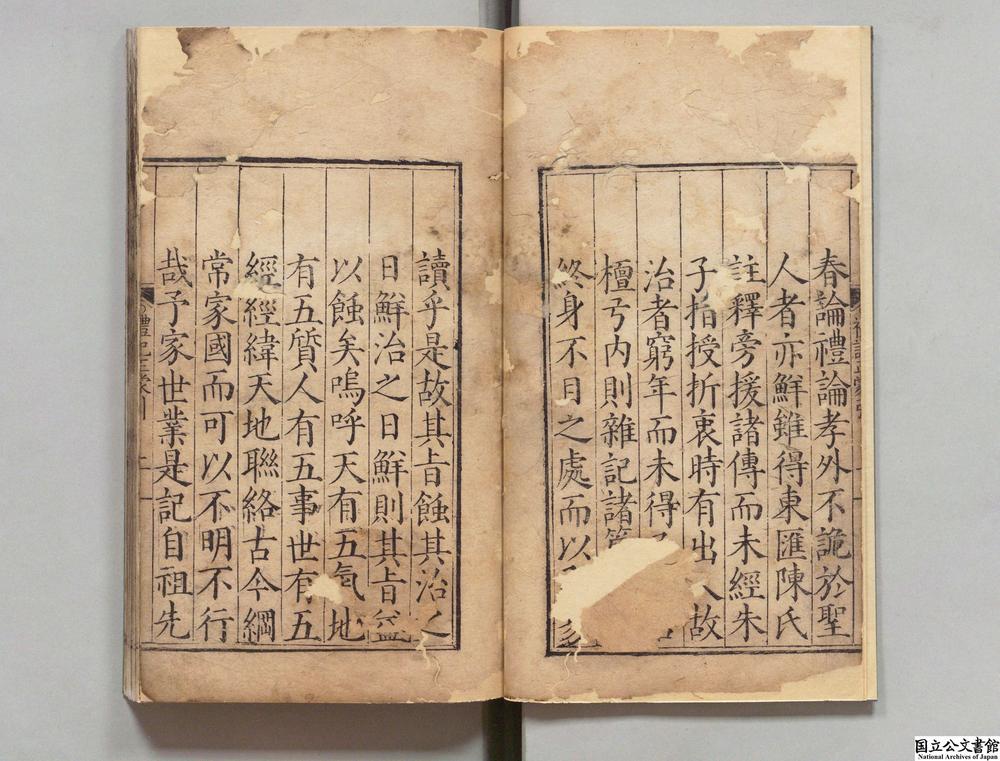 春論禮論孝外不詭於聖
人者亦鮮雖得東匯陳氏
註釋旁援諸傳而未經朱
子指授折衷時有出入故
治者窮年而未得
檀弓内則雜記諸
終身不目之處而以
讀乎是故其旨蝕其治之
日鮮治之日鮮則其旨益
以蝕矣嗚呼天有五氣地
有五質人有五事世有五
經經緯天地聯絡古今綱
常家國而可以不明不行
哉予家世業是記自祖先
国立公文書館
National Archives of Japan